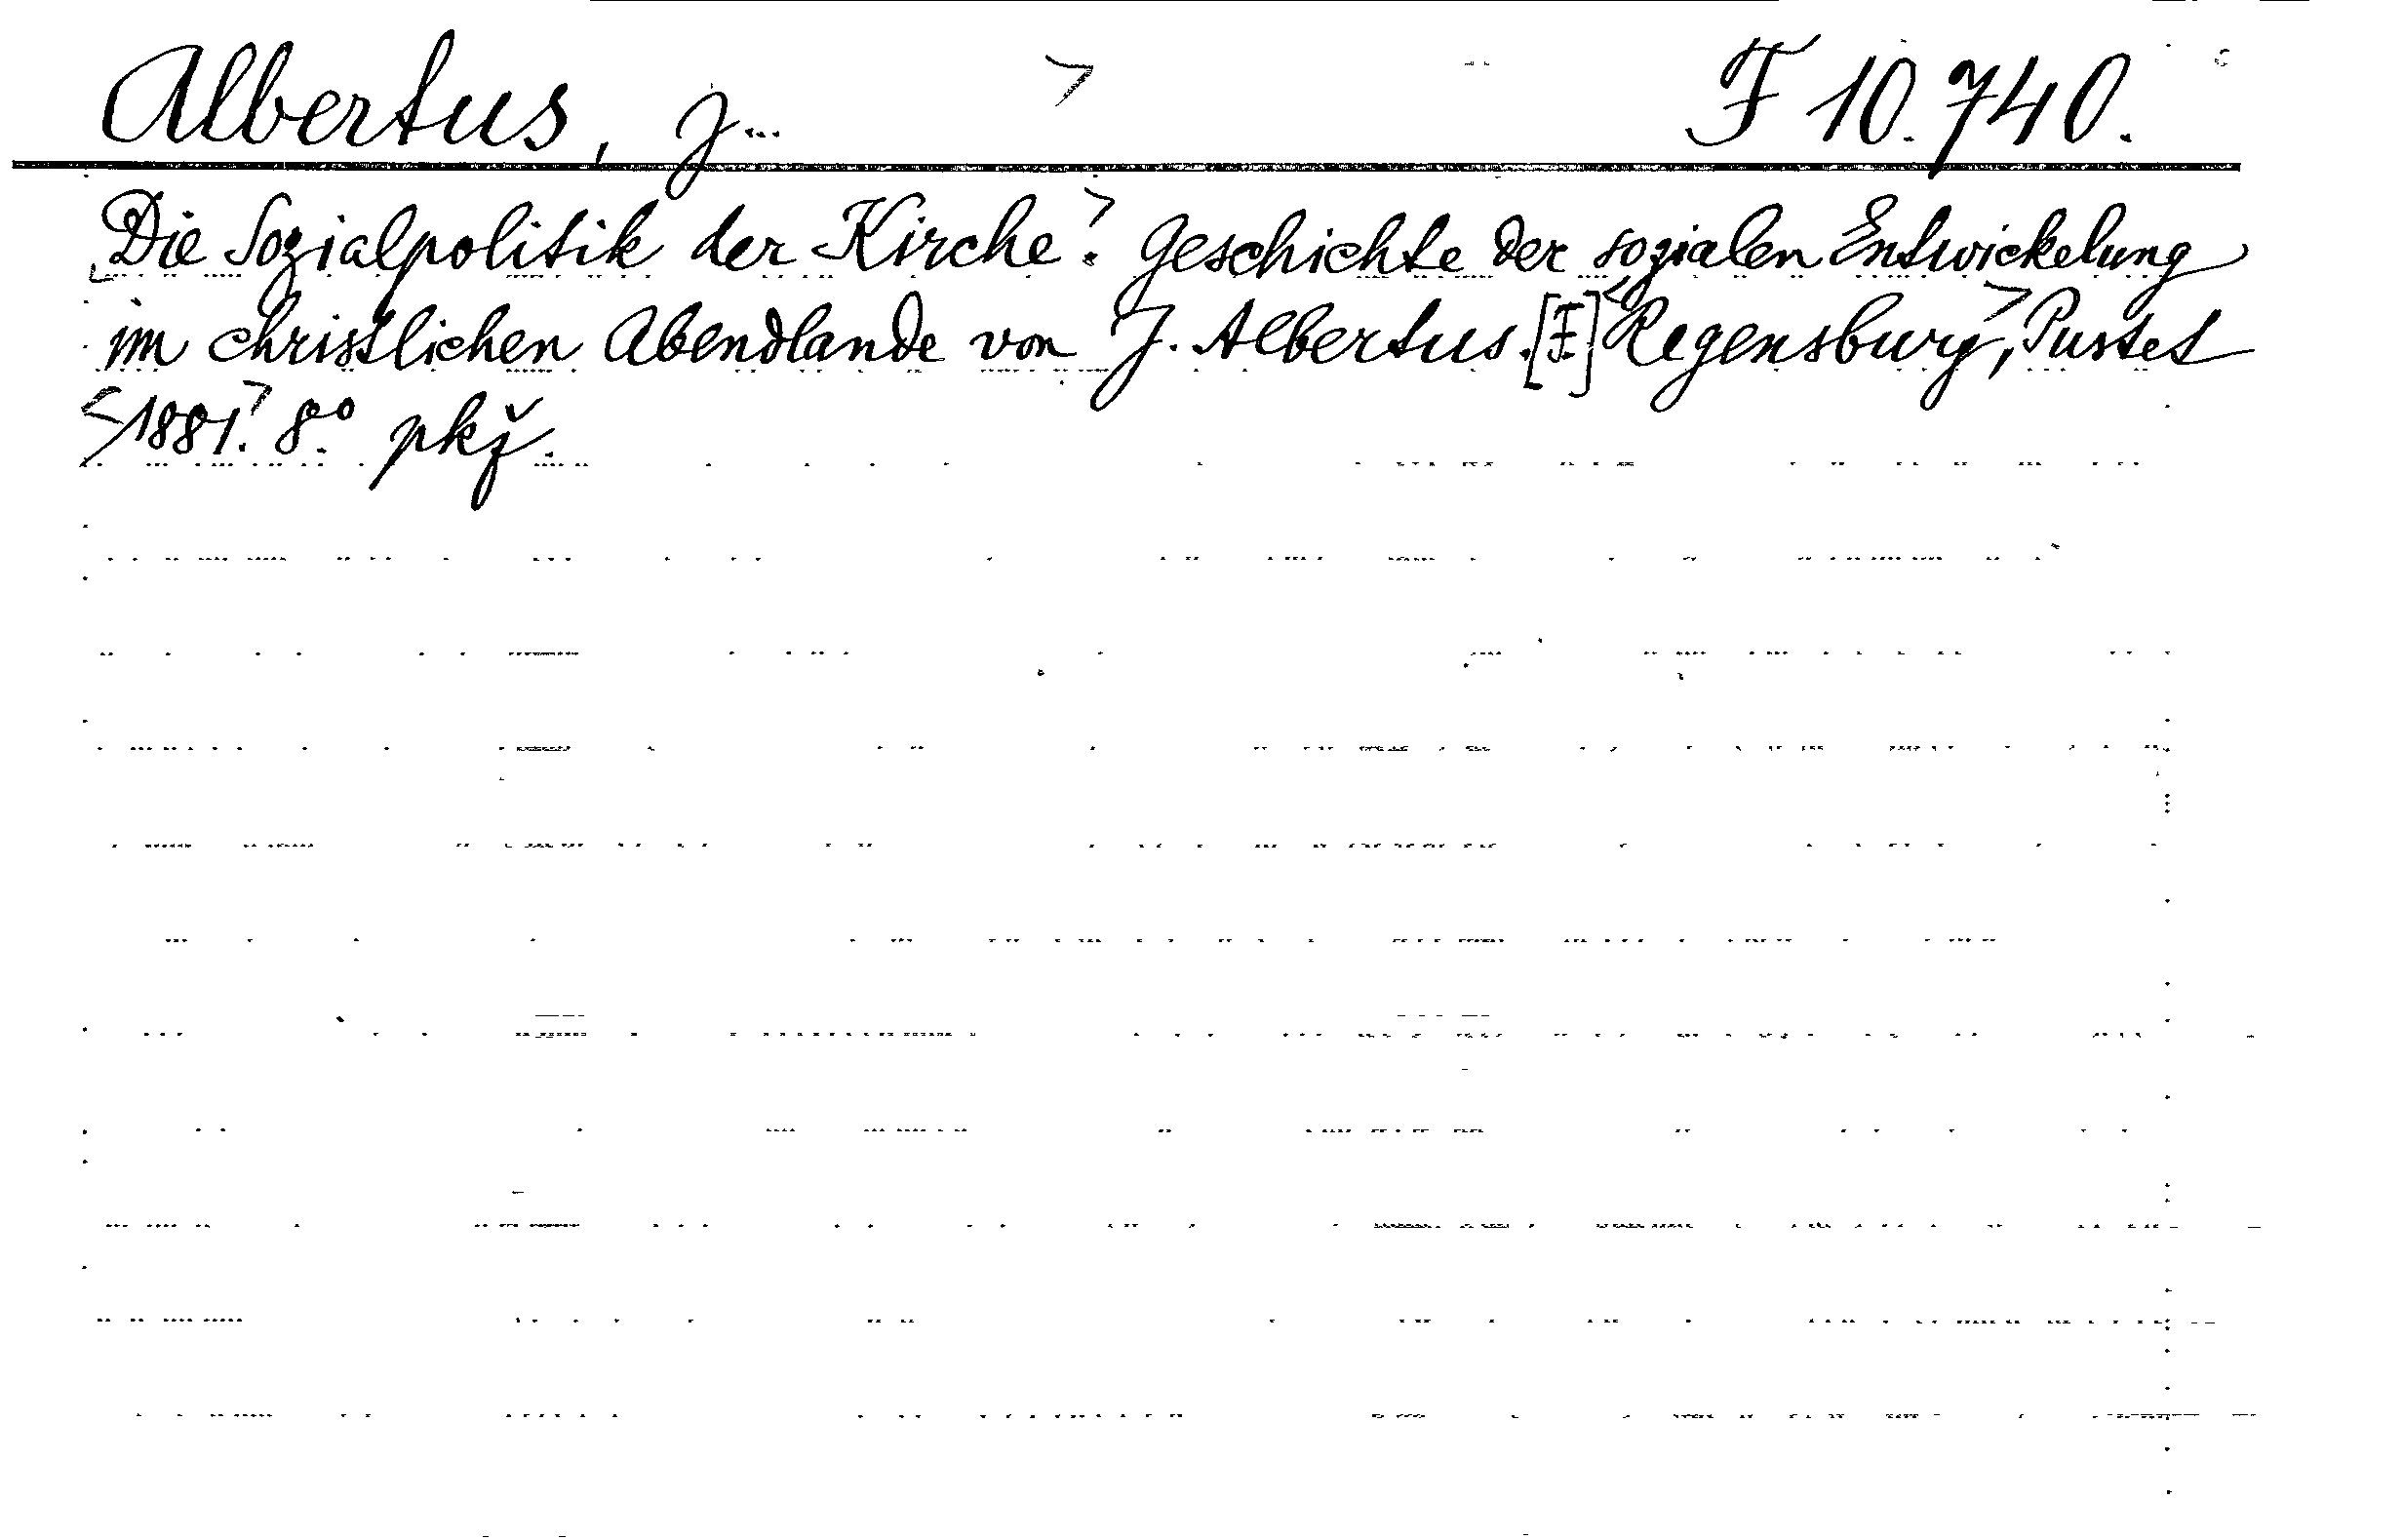 Albertus, J... F 10.740.
Die Sozialpolitik der Kirche. Geschichte der sozialen Entwickelung
im christlichen Abendlande von J. Albertus. [I] Regensburg, Pustet
1881. 8° pkž.